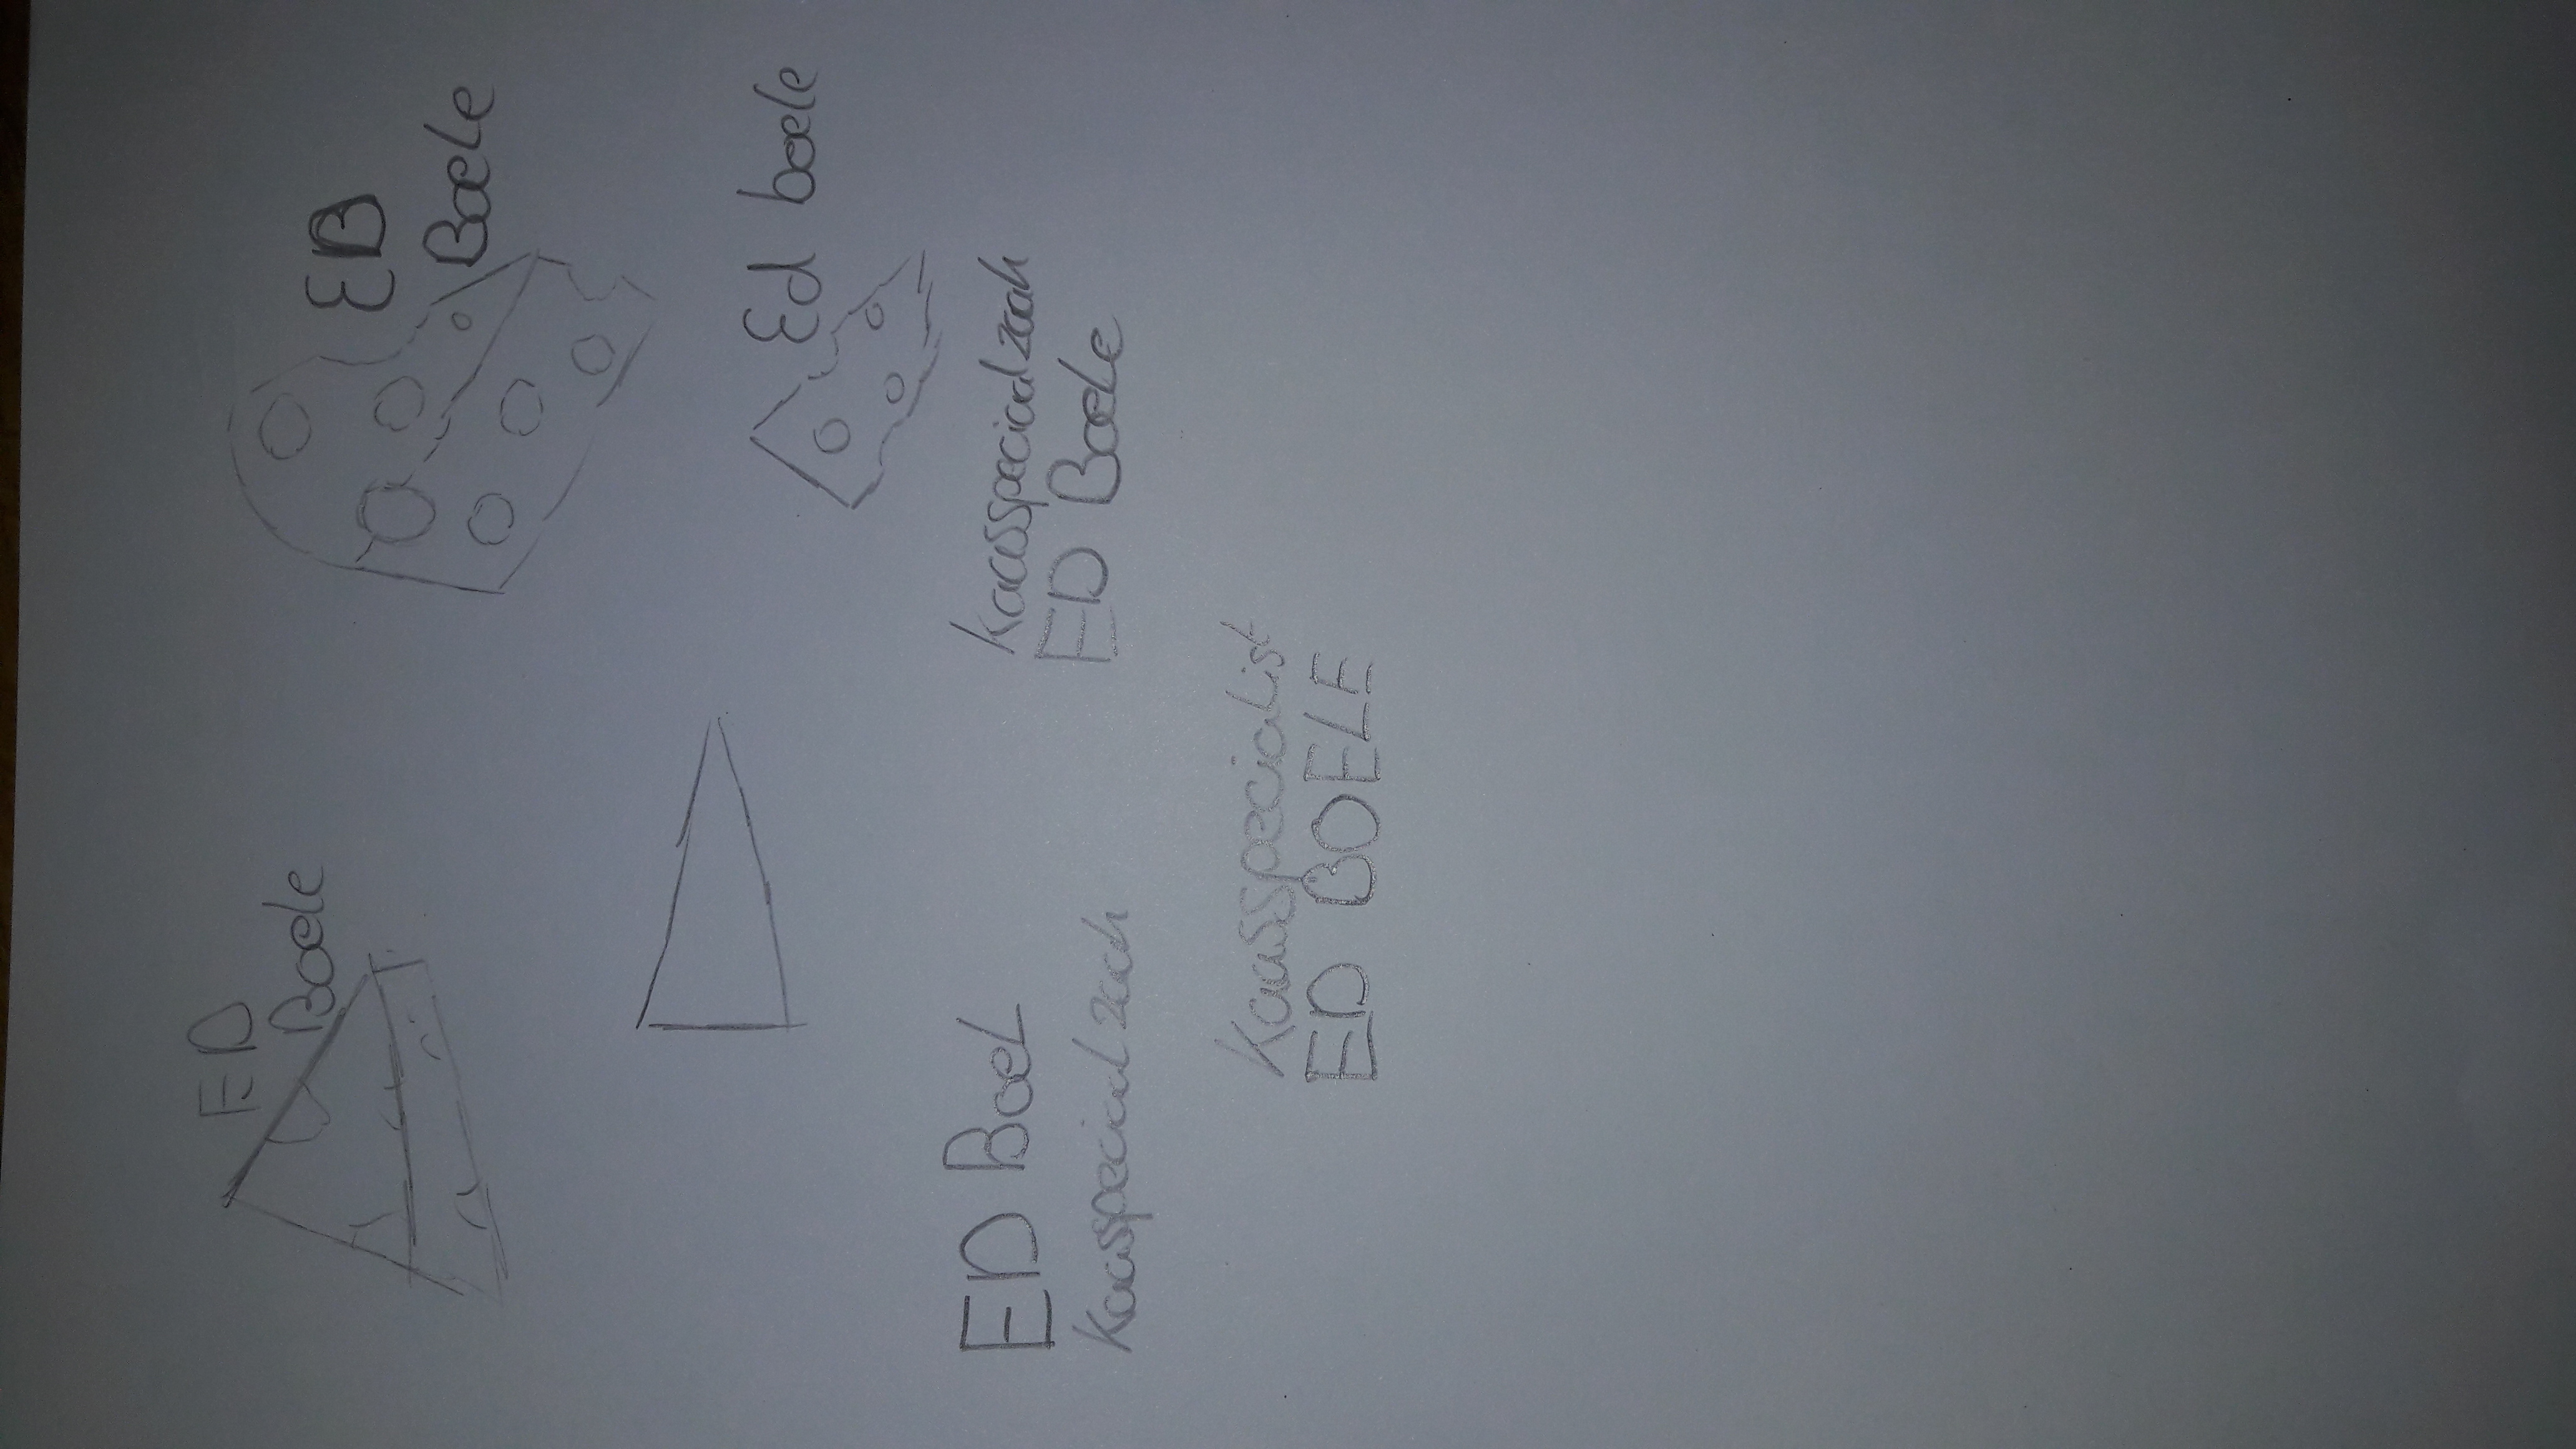 ED
Boele
EB
Boele
Ed boele
ED Boel
Kaasspeciaalzaak
Kaasspeciaalzaak
ED Boele
Kaasspecialist
ED BOELE